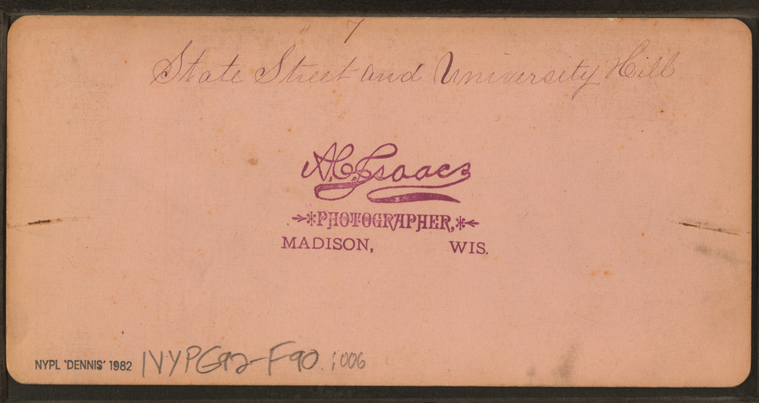 7
State Street and University Hill
A.C. Isaacs
PHOTOGRAPHER,
MADISON, WIS.
NYPL 'DENNIS' 1982 NYPG92-F90 :006